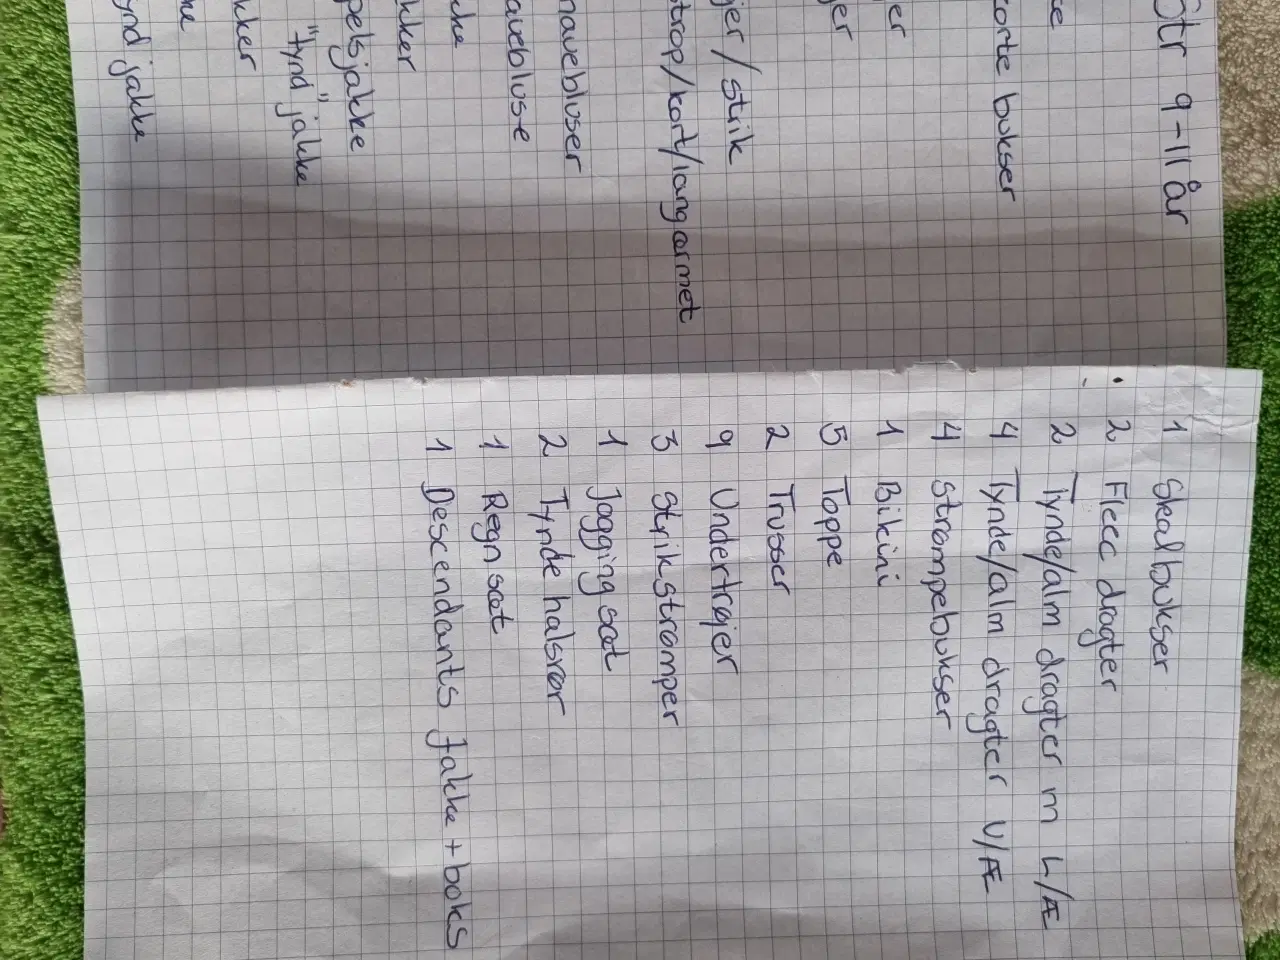 Str 9-11 år
korte bukser
strik
strop/kort/langærmet
navebluser
pelsjakke
"tynd" jakke
tynd jakke
1 Skalbukser
2 Fleec dragter
2 Tynde/alm dragter m L/Æ
4 Tynde/alm dragter U/Æ
4 Strømpebukser
1 Bikini
5 Toppe
2 Trusser
9 Undertrøjer
3 Strikstrømper
1 Joggingsæt
2 Tynde halsrør
1 Regnsæt
1 Descendants jakke + boks